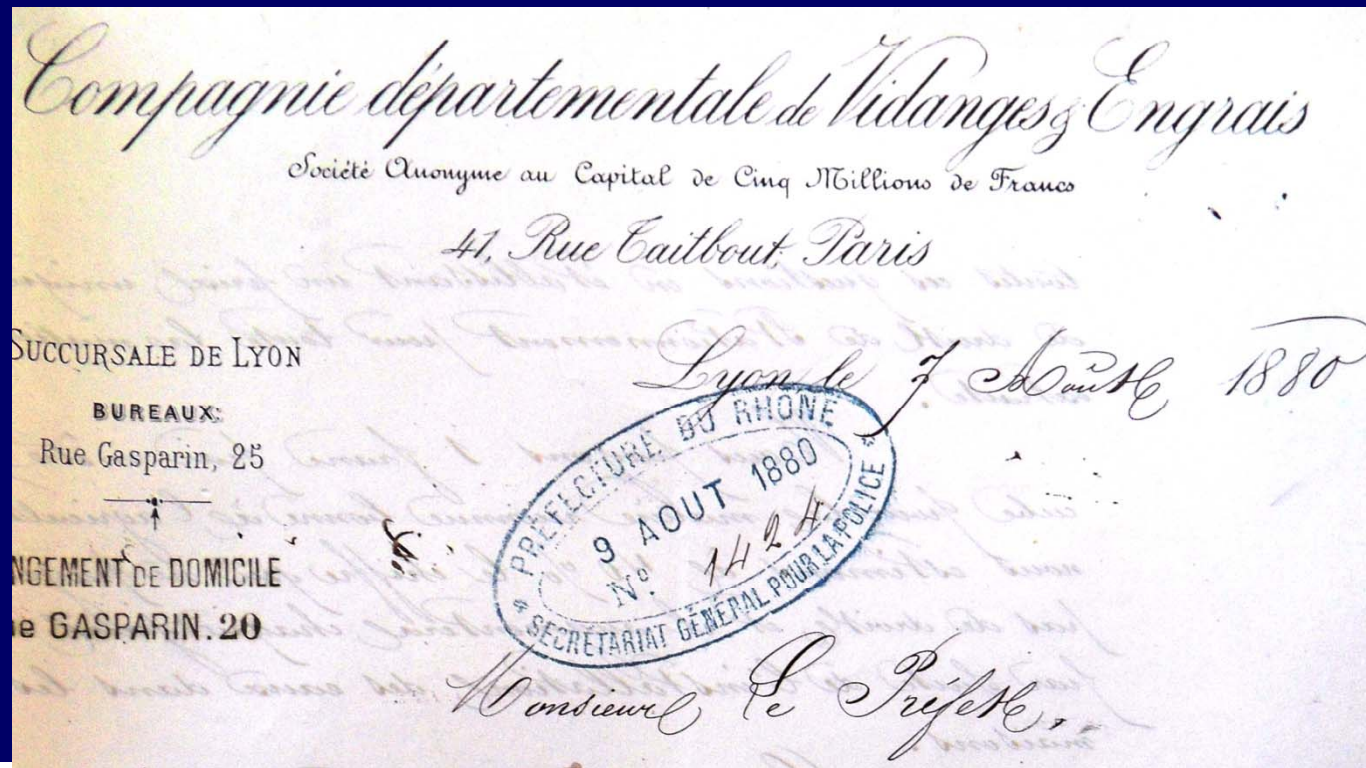 Compagnie départementale de Vidanges & Engrais
Société Anonyme au Capital de Cinq Millions de Francs
41, Rue Taitbout, Paris
SUCCURSALE DE LYON
BUREAUX:
Rue Gasparin, 25
NGEMENT DE DOMICILE
ue GASPARIN. 20
Lyon le 7 Août 1880
PRÉFECTURE DU RHÔNE
9 AOUT 1880
N° 1424
* SECRÉTARIAT GÉNÉRAL POUR LA POLICE *
Monsieur Le Préfet,